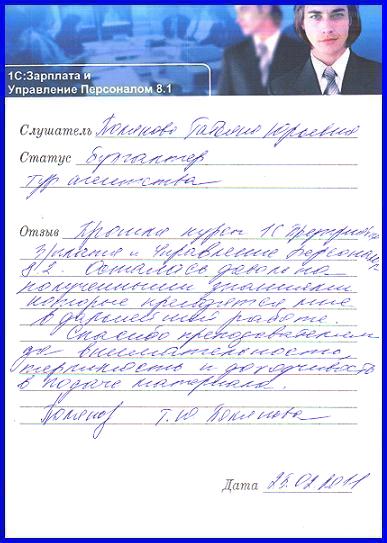 1С:Зарплата и
Управление Персоналом 8.1
Слушатель Полякова Татьяна Юрьевна
Статус бухгалтер
тур агентства
Отзыв Прошла курсы 1С Предприятие
Зарплата и Управление Персоналом
8.2. Осталась довольна
полученными знаниями
которые пригодятся мне
в дальнейшей работе.
Спасибо преподавателям
за внимательность,
терпимость и доходчивость
в подаче материала.
Т.Ю Полякова
Дата 25.02.2011